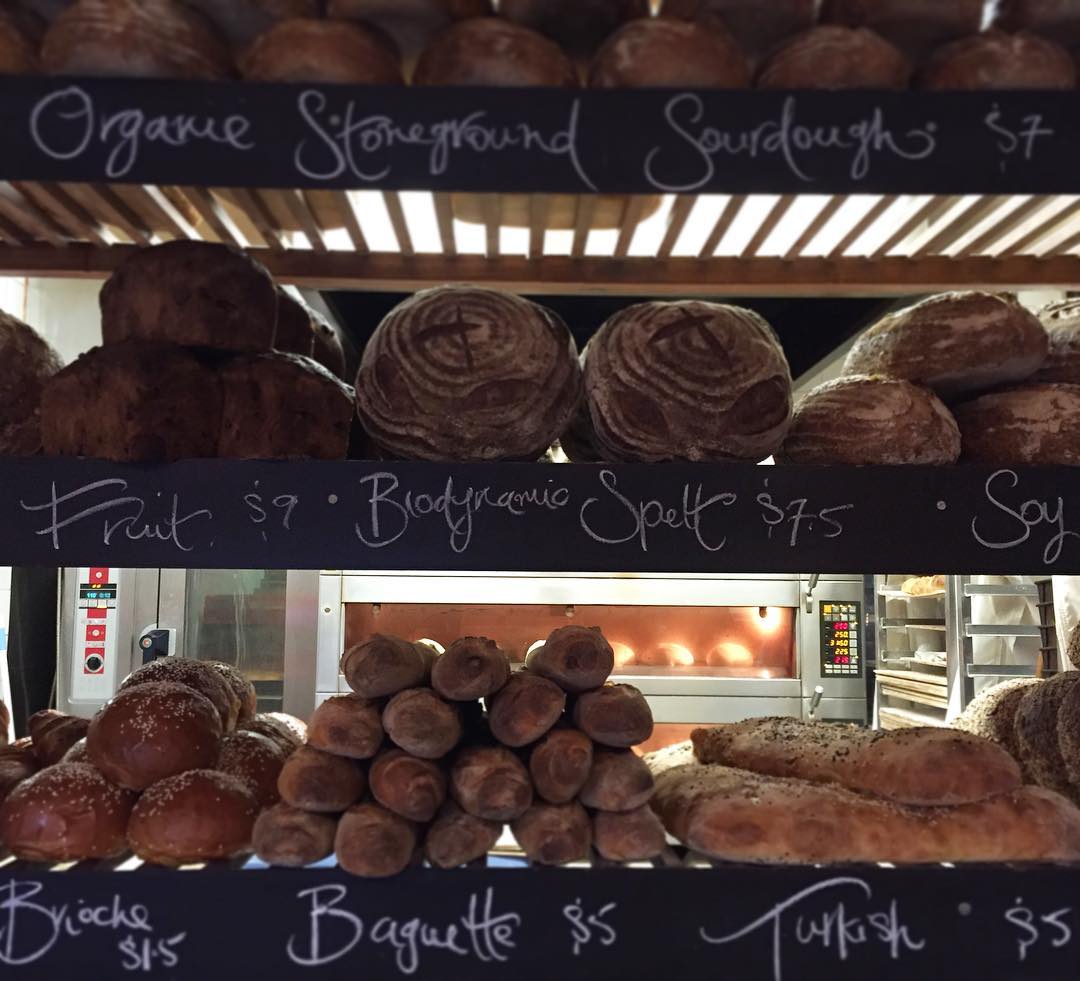 Organic Stoneground Sourdough $7
Fruit $9 • Biodynamic Spelt $7.5 • Soy
Brioche $1.5 Baguette $5 Turkish • $5